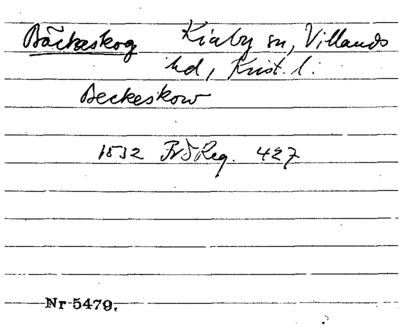 Bäckaskog Kiaby sn, Villands
hd, Krist. l.
Beckeskow
1532 Fr I Reg. 427
Nr 5479.